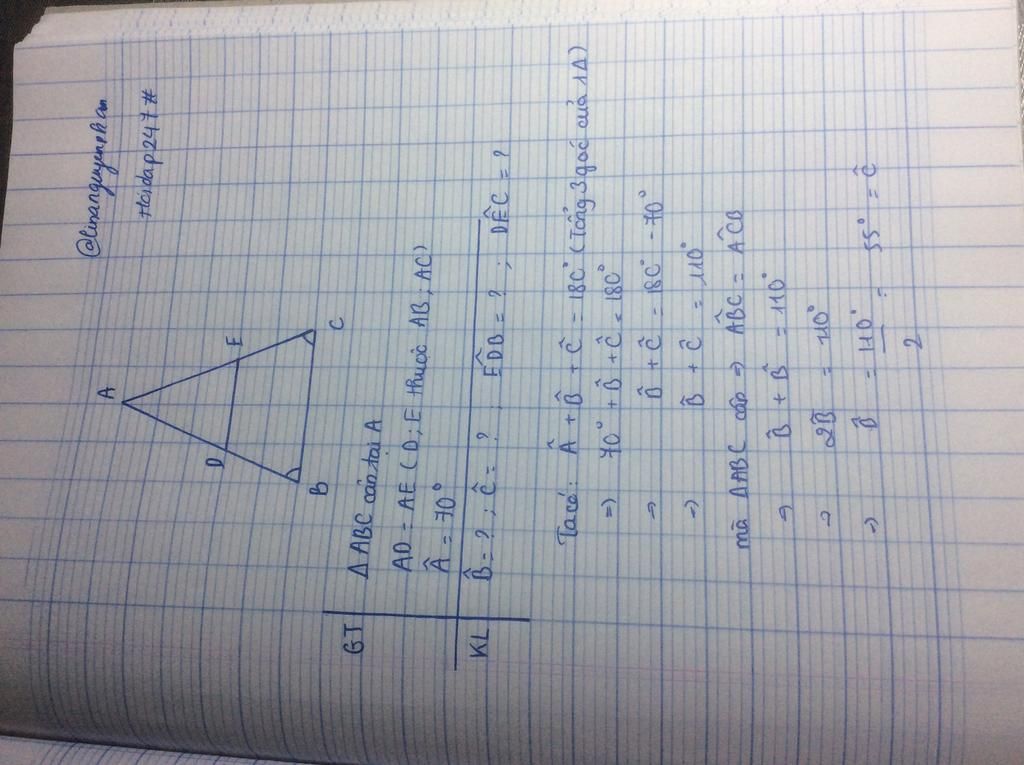 @linanguyenphan
Hoidap247#
A
D
E
B
C
GT
ΔABC cân tại A
AD = AE (D; E thuộc AB; AC)
Â = 70°
KL
B̂ = ? ; Ĉ = ? ; ED̂B = ? ; DÊC = ?
Ta có: Â + B̂ + Ĉ = 180° (Tổng 3 góc của 1Δ)
=> 70° + B̂ + Ĉ = 180°
=> B̂ + Ĉ = 180° - 70°
=> B̂ + Ĉ = 110°
mà ΔABC cân => AB̂C = AĈB
=> B̂ + B̂ = 110°
=> 2B̂ = 110°
=> B̂ = 110°/2 = 55° = Ĉ